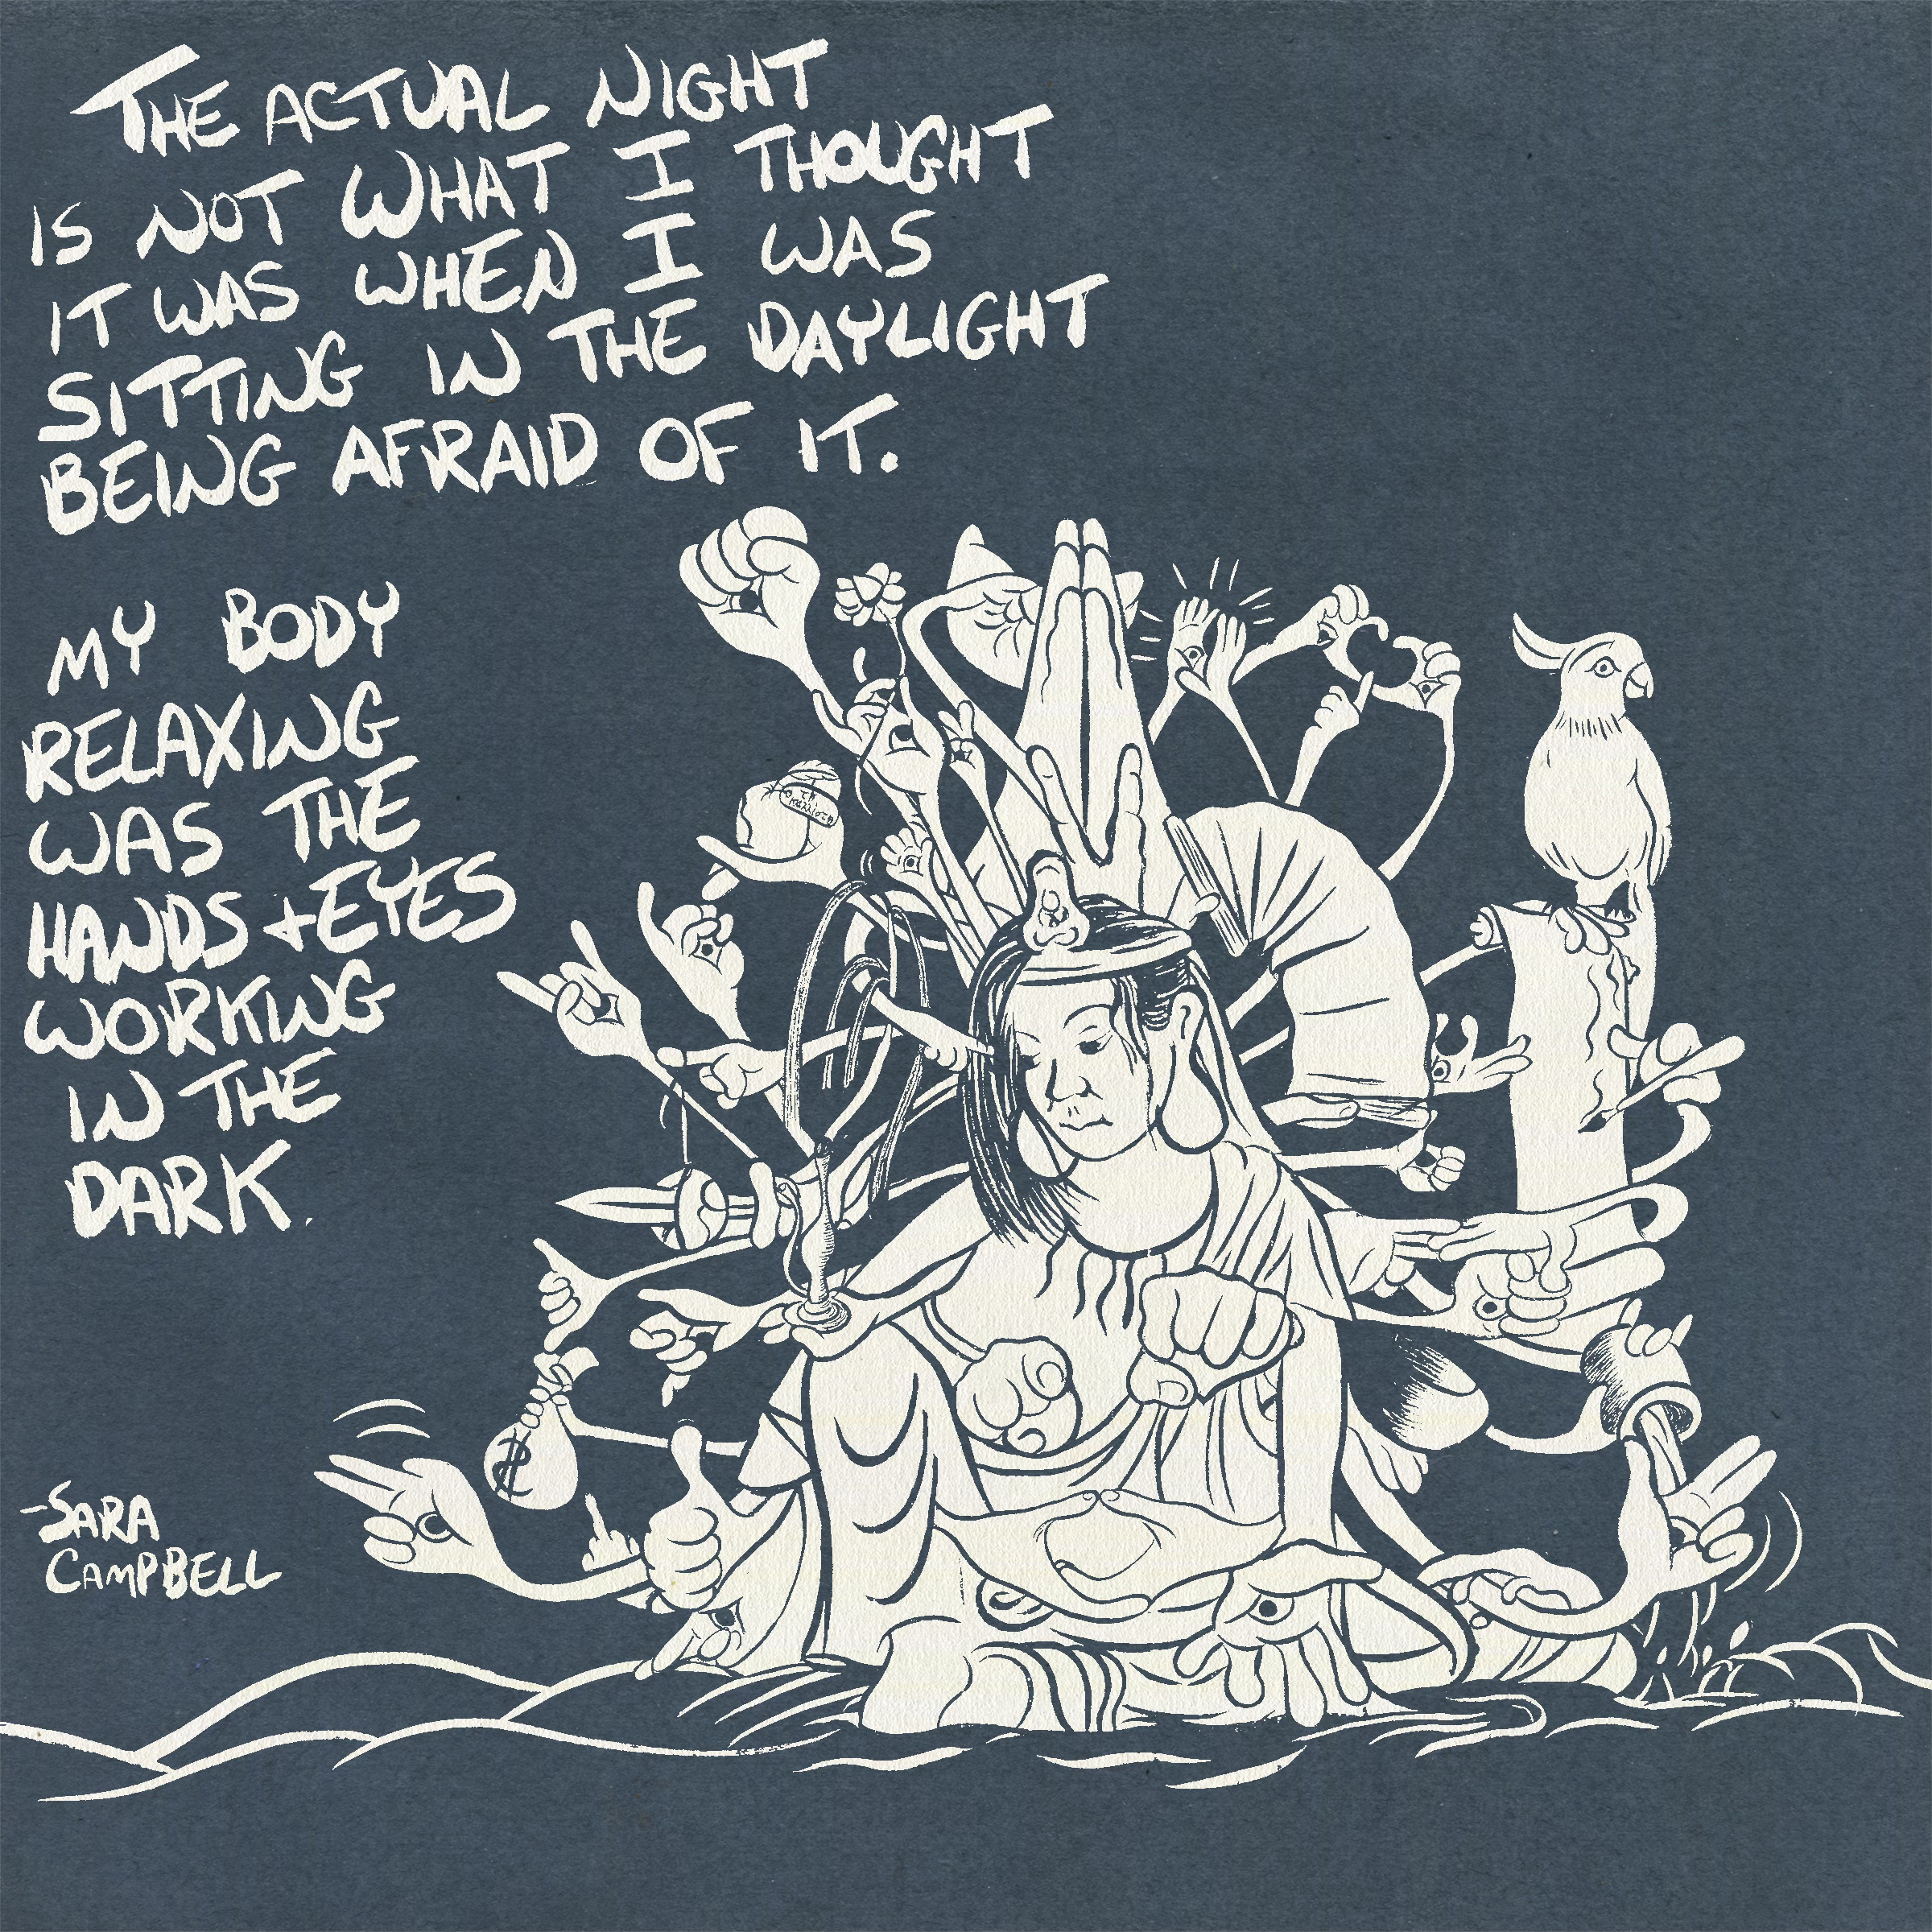 THE ACTUAL NIGHT
IS NOT WHAT I THOUGHT
IT WAS WHEN I WAS
SITTING IN THE DAYLIGHT
BEING AFRAID OF IT.
MY BODY
RELAXING
WAS THE
HANDS + EYES
WORKING
IN THE
DARK.
$
-SARA
CAMPBELL